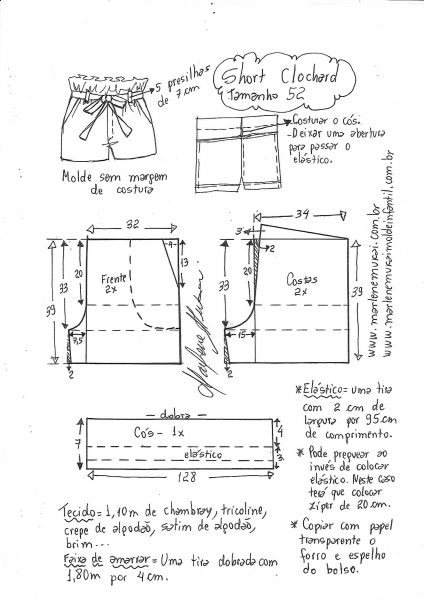 Short Clochard
Tamanho 52
5 presilhas
de 7cm
-Costurar o cós.
-Deixar uma abertura
para passar o
elástico.
Molde sem margem
de costura
www.marlenemukai.com.br
www.marlenemukaimoldeinfantil.com.br
32
4
13
20
33
39
Frente
2x
7,5
2
34
3
2
20
33
39
Costas
2x
15
2
Marlene Mukai
dobra
Cós - 1x
elástico
7
4
3
128
*Elástico = uma tira
com 2 cm de
largura por 95cm
de comprimento.
* Pode preguear ao
invés de colocar
elástico. Neste caso
terá que colocar
zíper de 20cm.
* Copiar com papel
transparente o
forro e espelho
do bolso.
Tecido = 1,10m de chambray, tricoline,
crepe de algodão, satim de algodão,
brim...
Faixa de amarrar = Uma tira dobrada com
1,80m por 4cm.